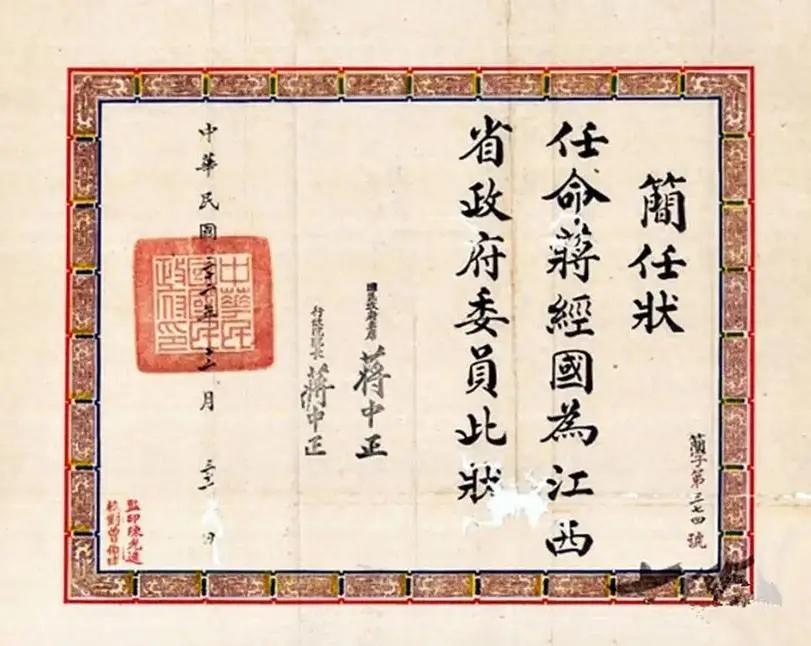 簡字第三七四號
簡任狀
任命蔣經國為江西
省政府委員此狀
國民政府主席 蔣中正
行政院院長 蔣中正
中華民國三十二年十二月三十一日
中華民
國國民
政府印
監印陳光遠
校對曾伯